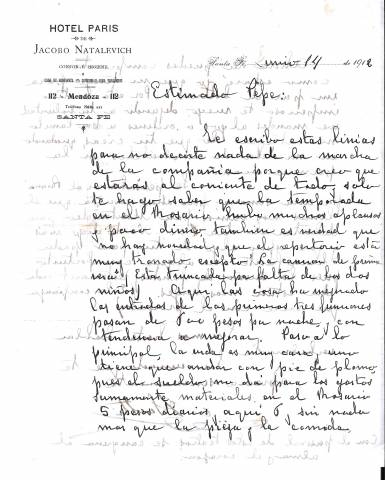 HOTEL PARIS
DE
JACOBO NATALEVICH
112 - Mendoza - 112
SANTA FE
Santa Fe, Junio 14 de 1912
Estimado Pepe:
Le escribo estas linias
para no decirte nada de la marcha
de la compañia porque creo que
estarás al corriente de todo, solo
te hago saber que la temporada
en el Rosario, hubo muchos aplausos
y poco dinero, tambien es verdad que
no hay novedad, que el repertorio está
muy tronado, escepto "La cancion de
rosa" Esta truncada por falta de los dos
niños. Aqui, las cosa ha mejorado
las entradas de las primeras tres funciones
pasan de pesos por noche, con
tendencia a mejorar. Pasa a lo
principal, la vida es muy cara, uno
tiene que andar con pie de plomo,
pues el sueldo, no da para los gastos
sumamente materiales, en el Rosario
5 pesos diarios, aqui 5 sin nada
mas que la pieza y la comida